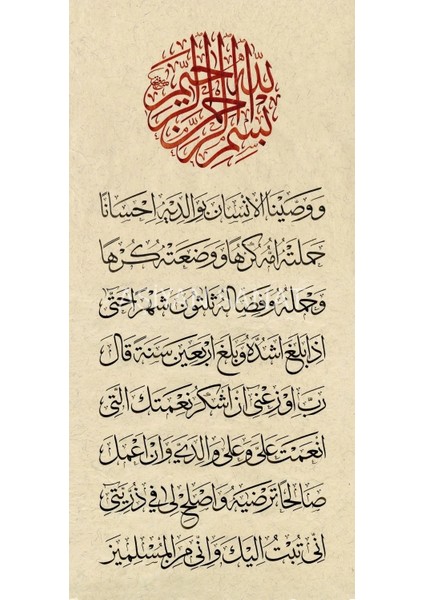 بسم الله الرحمن الرحيم
ووصينا الانسان بوالديه احسانا
حملته امه كرها ووضعته كرها
وحمله وفصاله ثلثون شهرا حتى
اذا بلغ اشده وبلغ اربعين سنة قال
رب اوزعنى ان اشكر نعمتك التى
انعمت على وعلى والدى وان اعمل
صالحا ترضيه واصلح لى فى ذريتى
انى تبت اليك وانى من المسلمين